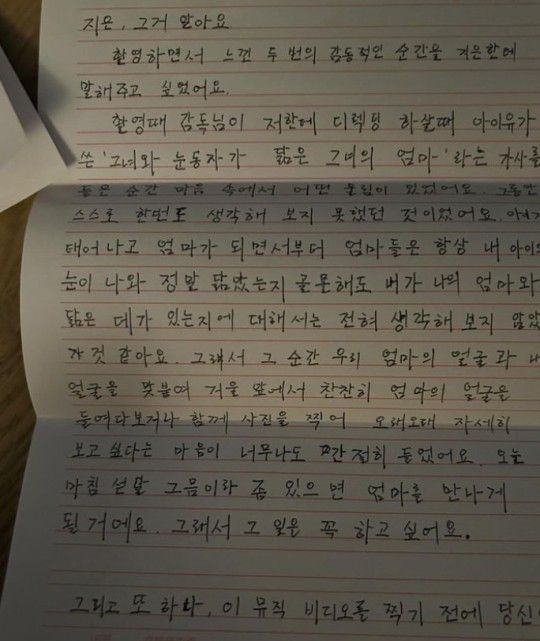 지은, 그거 알아요
촬영하면서 느낀 두 번의 감동적인 순간을 지은한테
말해주고 싶었어요.
촬영때 감독님이 저한테 디렉팅 하실때 아이유가
쓴 '그녀와 눈동자가 닮은 그녀의 엄마'라는 가사를
듣은 순간 마음 속에서 어떤 울림이 있었어요. 그동안
스스로 한번도 생각해 보지 못했던 것이었어요. 아이가
태어나고 엄마가 되면서부터 엄마들은 항상 내 아이의
눈이 나와 정말 닮았는지 골몰해도 내가 나의 엄마와
닮은 데가 있는지에 대해서는 전혀 생각해 보지 않았
가 것 같아요. 그래서 그 순간 우리 엄마의 얼굴과 내
얼굴을 맞붙여 거울 앞에서 찬찬히 엄마의 얼굴은
들여다보거나 함께 사진을 찍어 오래오래 자세히
보고 싶다는 마음이 너무나도 간절히 들었어요. 오늘
마침 섣달 그믐이라 좀 있으면 엄마를 만나게
될 거예요. 그래서 그 일을 꼭 하고 싶어요.
그리고 또 하나, 이 뮤직 비디오를 찍기 전에 당신